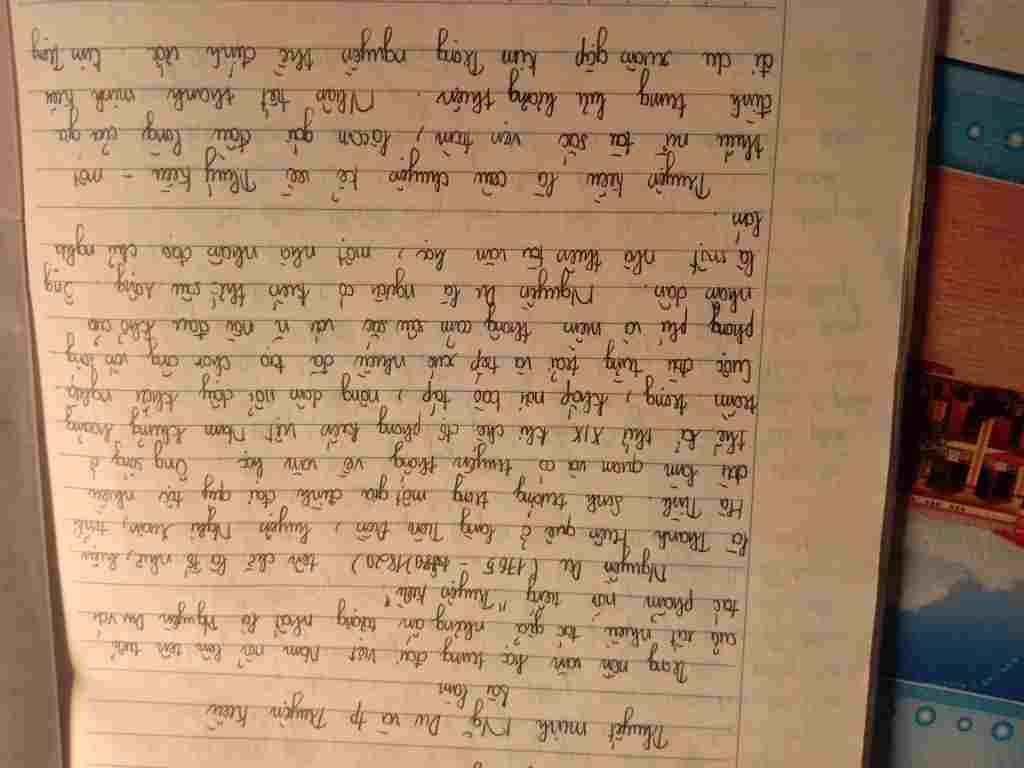 Thuyết minh Ng~ Du và tp Truyện Kiều
Bài làm
Trong nền văn học trung đại Việt Nam nổi lên tên tuổi
của rất nhiều tác giả nhưng ấn tượng nhất là Nguyễn Du với
tác phẩm nổi tiếng "Truyện Kiều"
Nguyễn Du (1765 - 1820) tên chữ là Tố Như, hiệu
là Thanh Hiên quê ở làng Tiên Điền, huyện Nghi Xuân, tỉnh
Hà Tĩnh. Sinh trưởng trong một gia đình đại quý tộc nhiều
đời làm quan và có truyền thống về văn học. Ông sống ở
thế kỉ thứ XIX khi chế độ phong kiến Việt Nam khủng hoảng
trầm trọng, khắp nơi bão táp, nông dân nổi dậy khởi nghĩa
Cuộc đời từng trải và tiếp xúc nhiều đã tạo cho ông vốn sống
phong phú và niềm thông cảm sâu sắc với n~ nỗi đau khổ của
nhân dân. Nguyễn Du là người có kiến thức sâu rộng. Ông
là một nhà thiên tài văn học, một nhà nhân đạo chủ nghĩa
lớn.
Truyện Kiều là câu chuyện kể về Thúy Kiều - một
thiếu nữ tài sắc vẹn toàn, là con gái đầu lòng của gia
đình trung lưu lương thiện. Nhân tiết thanh minh Kiều
đi du xuân gặp Kim Trọng nguyện thề đính ước. Kim Trọng